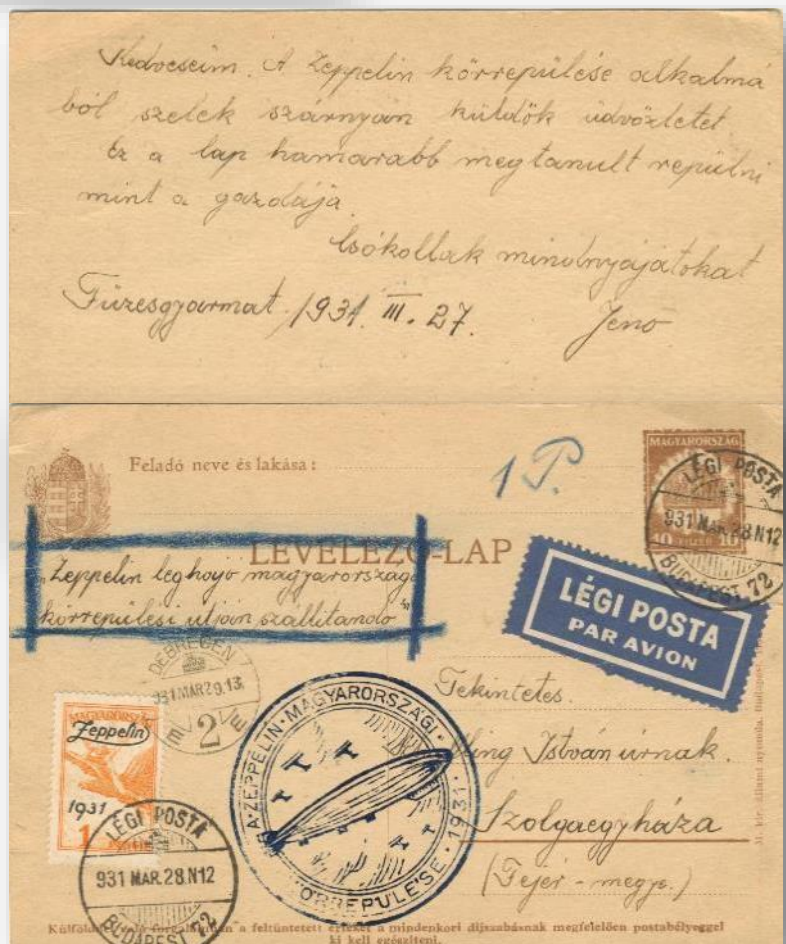 Kedveseim. A Zeppelin körrepülése alkalmá
ból szelek szárnyán küldök üdvözletet.
Ez a lap hamarabb megtanult repülni
mint a gazdája.
Csókollak mindnyájatokat
Füzesgyarmat 1931. III. 27. Jenő
Feladó neve és lakása:
1 P.
MAGYARORSZÁG
10
LÉGI POSTA
931 MAR. 28. N12
BUDAPEST 72
LEVELEZŐ-LAP
Zeppelin léghajó magyarországi
körrepülési útján szállítandó
LÉGI POSTA
PAR AVION
DEBRECEN
931 MAR 29. 13
2
MAGYARORSZÁG
Zeppelin
1931
1
A ZEPPELIN · MAGYARORSZÁGI · KÖRREPÜLÉSE · 1931 ·
Tekintetes.
István úrnak.
Szolgaegyháza
(Fejér-megye.)
LÉGI POSTA
931 MAR. 28. N12
BUDAPEST 72
M. kir. állami nyomda. Budapest.
Külföldre való forgalomban a feltüntetett értéket a mindenkori díjszabásnak megfelelően postabélyeggel
ki kell egészíteni.